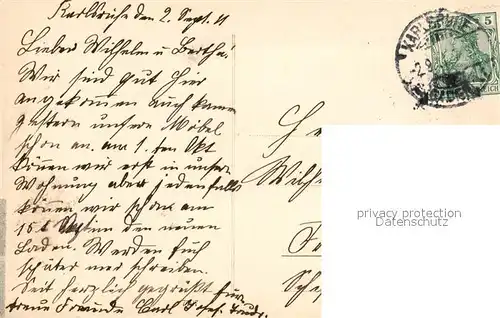 Karlsruhe den 2. Sept. 11
Lieber Wilhelm u Bertha!
Wir sind gut hier
angekommen auch kamen
gestern unsere Möbel
schon an. am 1. ten Okt
können wir erst in unsere
Wohnung aber jedenfalls
können wir schon am
15. in den neuen
Laden. Werden Euch
später mer schreiben.
Seid herzlich gegrüßt
treue Freunde Carl Josef
KARLSRUHE
5
REICH
Wilh
privacy protection
Datenschutz